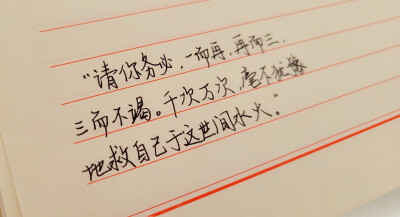 “请你务必，一而再，再而三，
三而不竭。千次万次，毫不犹豫
地救自己于这世间水火。”